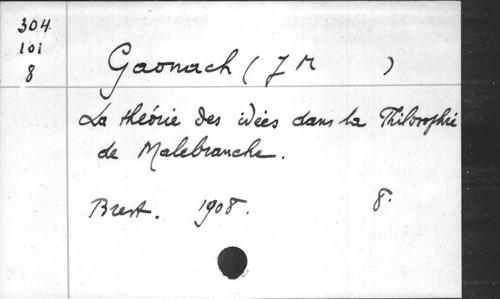 304
101
8
Gaonach (J M )
La théorie des idées dans la Philosophie
de Malebranche.
Brest. 1908. 8.